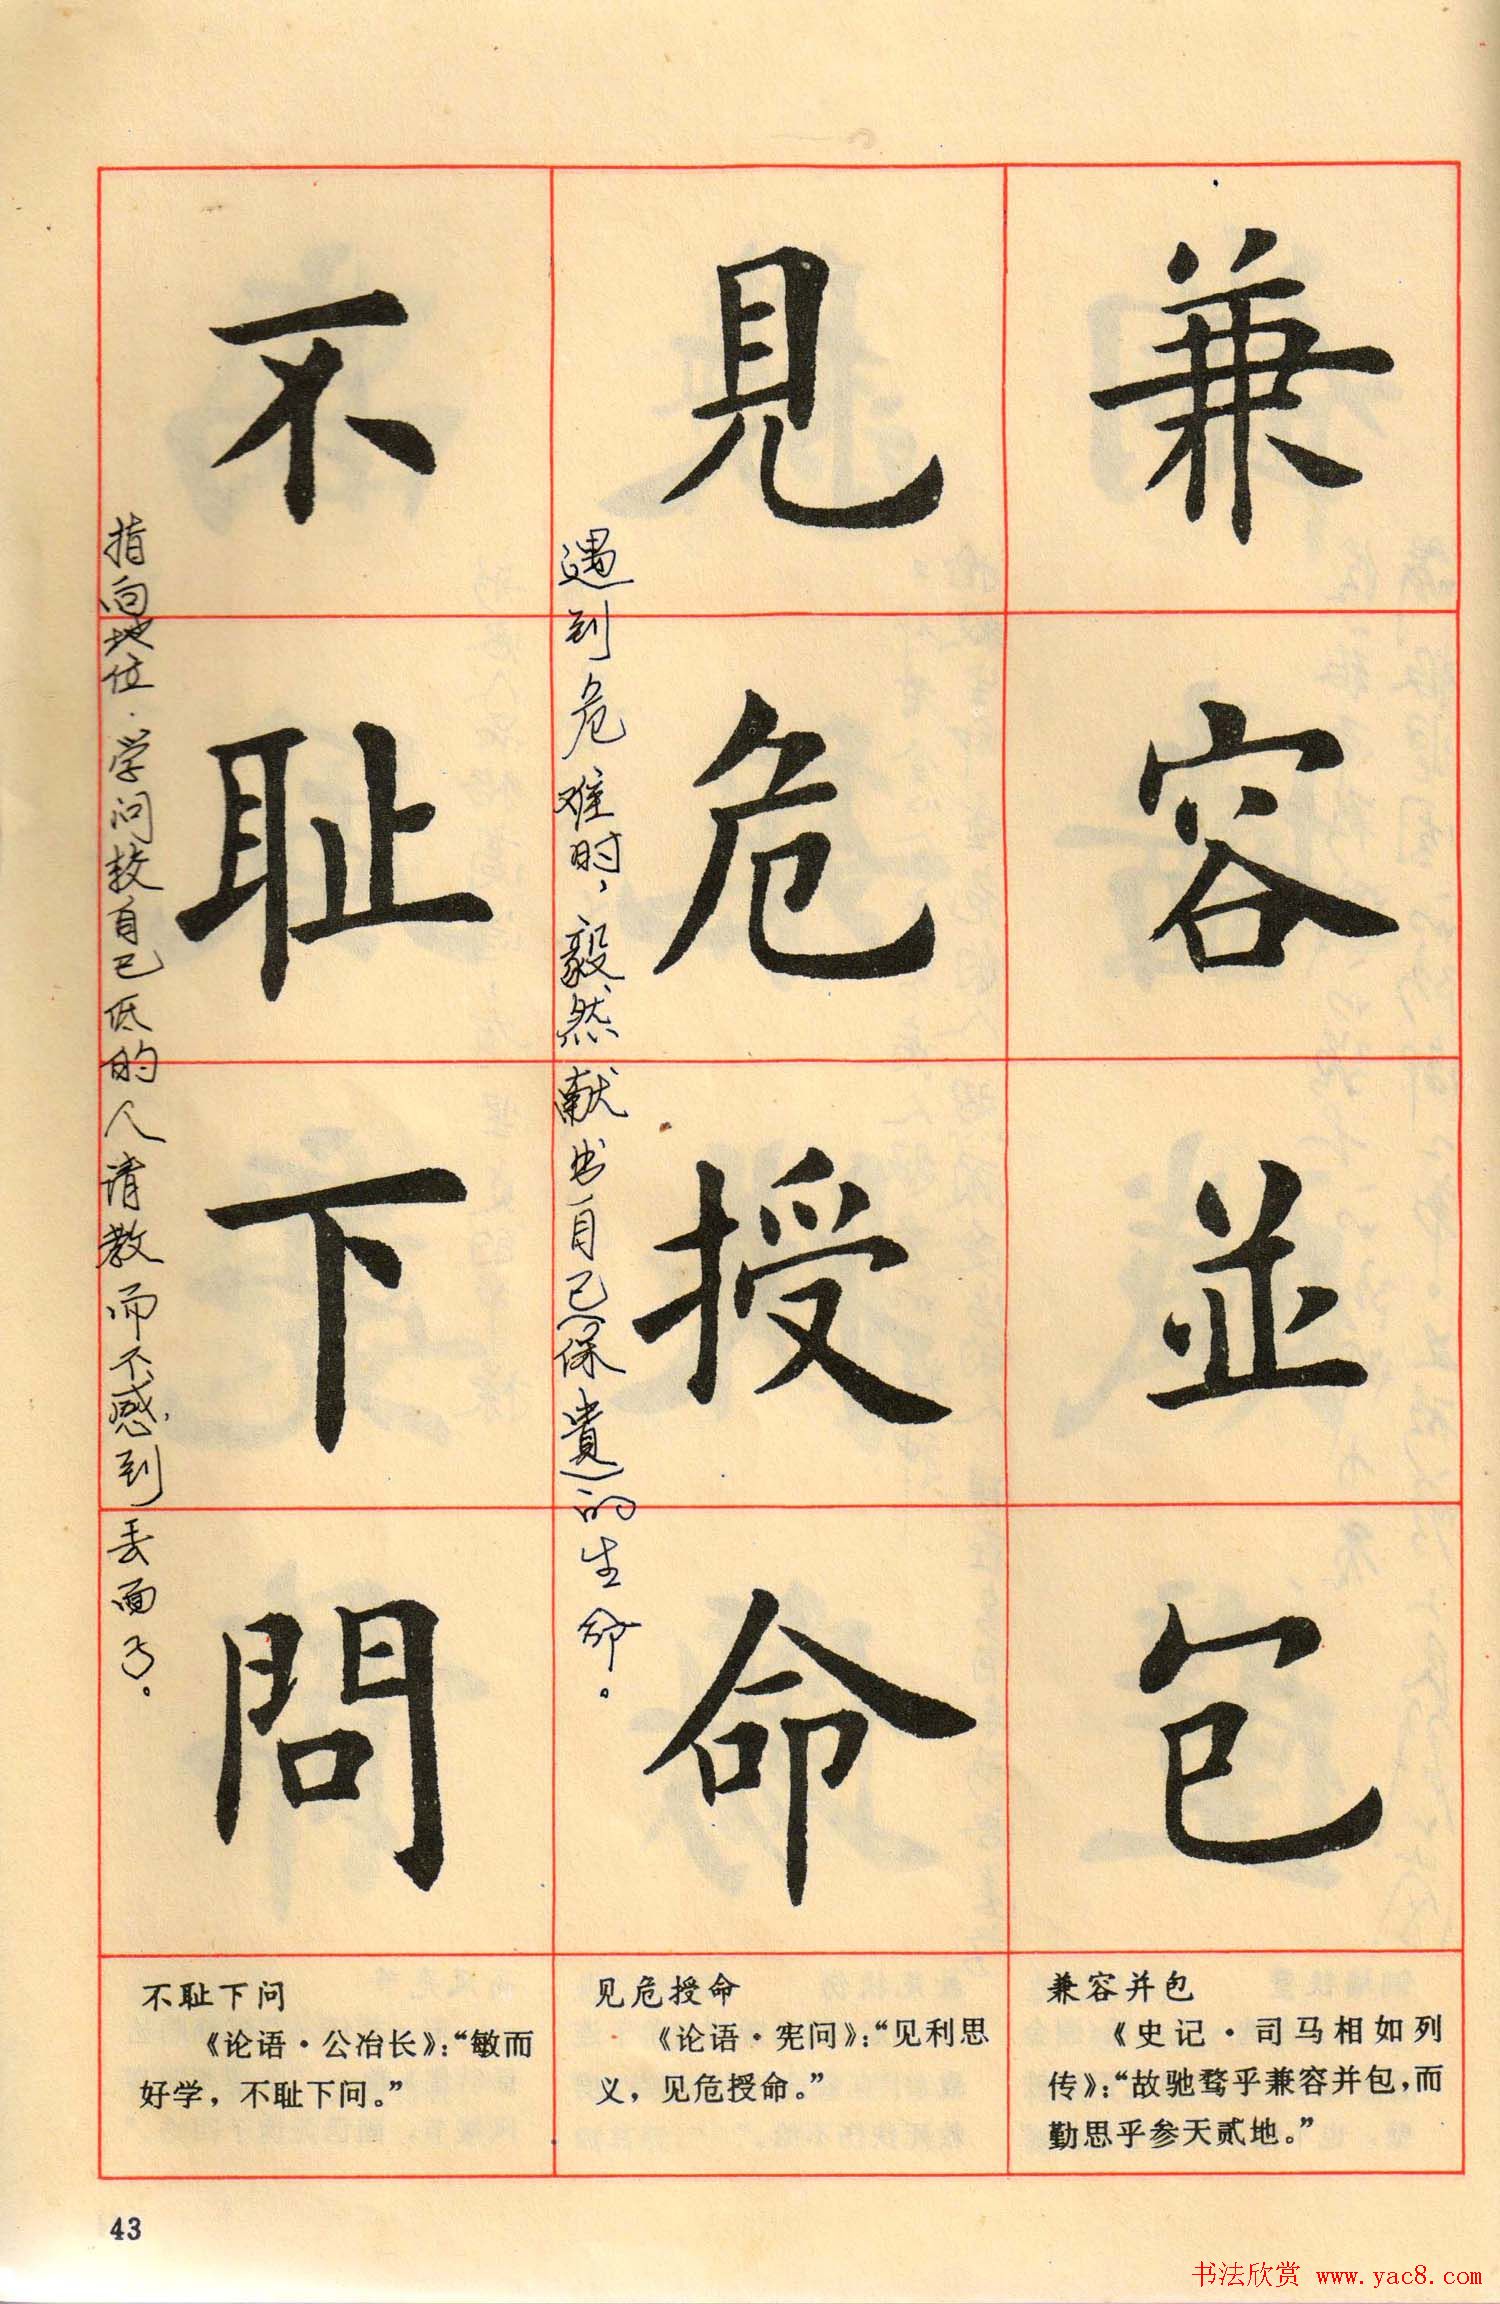 兼容並包
見危授命
不耻下問
遇到危难时，毅然献出自己(保貴)的生命。
指向地位·学问较自己低的人请教而不感到丢面子。
兼容并包
《史记·司马相如列
传》：“故驰骛乎兼容并包，而
勤思乎参天贰地。”
见危授命
《论语·宪问》：“见利思
义，见危授命。”
不耻下问
《论语·公冶长》：“敏而
好学，不耻下问。”
43
书法欣赏 www.yac8.com